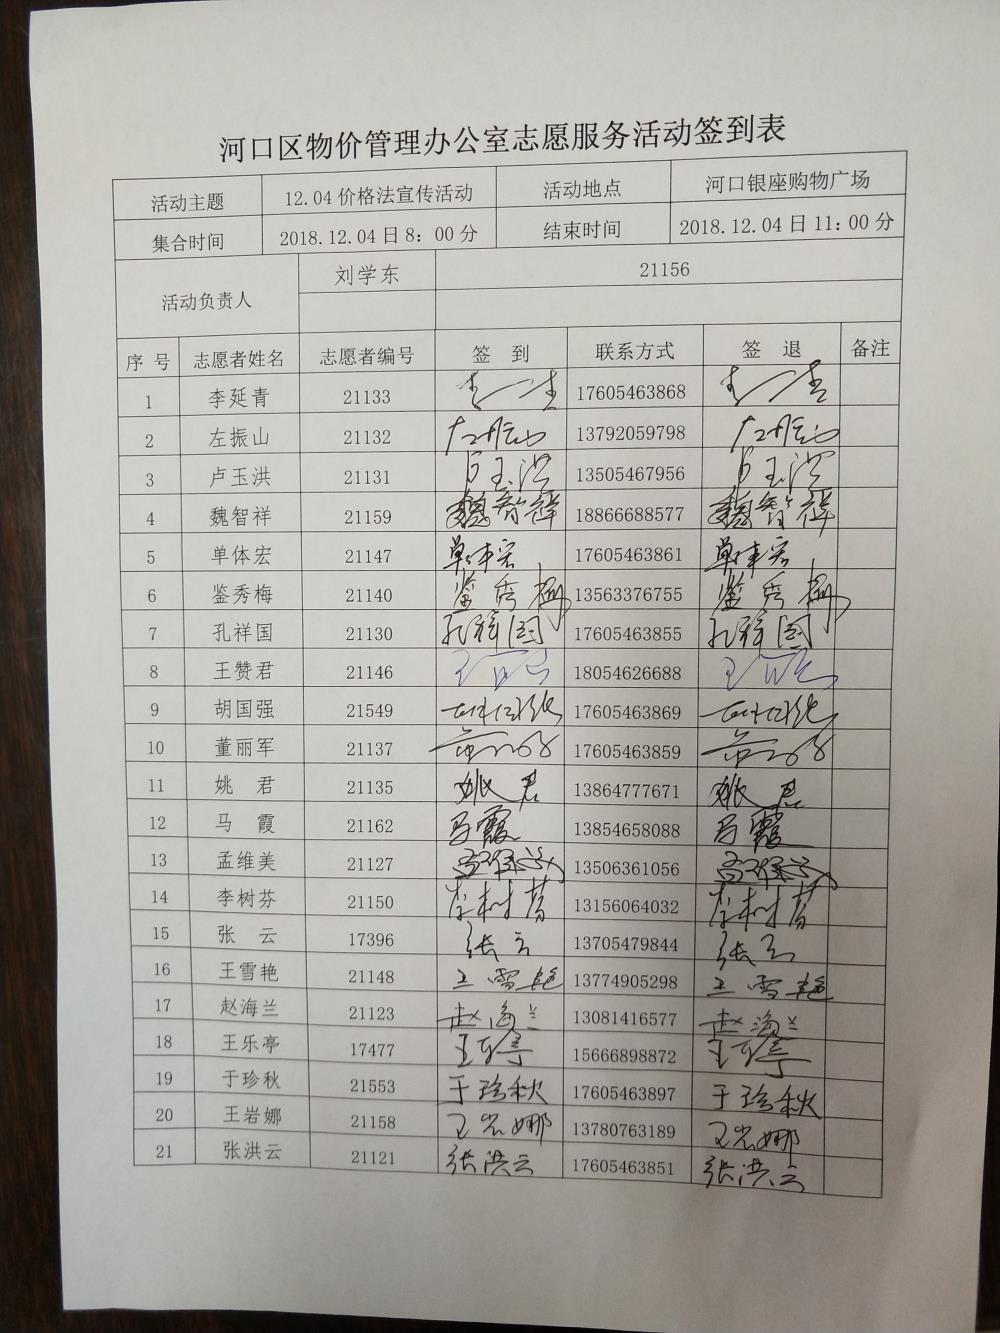 河口区物价管理办公室志愿服务活动签到表
活动主题 12.04 价格法宣传活动 活动地点 河口银座购物广场
集合时间 2018.12.04 日 8：00 分 结束时间 2018.12.04 日 11：00 分
活动负责人 刘学东 21156
序 号 志愿者姓名 志愿者编号 签 到 联系方式 签 退 备注
1 李延青 21133 17605463868
2 左振山 21132 左振山 13792059798 左振山
3 卢玉洪 21131 卢玉洪 13505467956 卢玉洪
4 魏智祥 21159 魏智祥 18866688577 魏智祥
5 单体宏 21147 单体宏 17605463861 单体宏
6 鉴秀梅 21140 鉴秀梅 13563376755 鉴秀梅
7 孔祥国 21130 孔祥国 17605463855 孔祥国
8 王赞君 21146 18054626688
9 胡国强 21549 胡国强 17605463869 胡国强
10 董丽军 21137 17605463859
11 姚 君 21135 姚君 13864777671 姚君
12 马 霞 21162 马霞 13854658088 马霞
13 孟维美 21127 孟维美 13506361056 孟维美
14 李树芬 21150 李树芬 13156064032 李树芬
15 张 云 17396 张云 13705479844 张云
16 王雪艳 21148 王雪艳 13774905298 王雪艳
17 赵海兰 21123 赵海兰 13081416577 赵海兰
18 王乐亭 17477 王乐亭 15666898872 王乐亭
19 于珍秋 21553 于珍秋 17605463897 于珍秋
20 王岩娜 21158 王岩娜 13780763189 王岩娜
21 张洪云 21121 张洪云 17605463851 张洪云